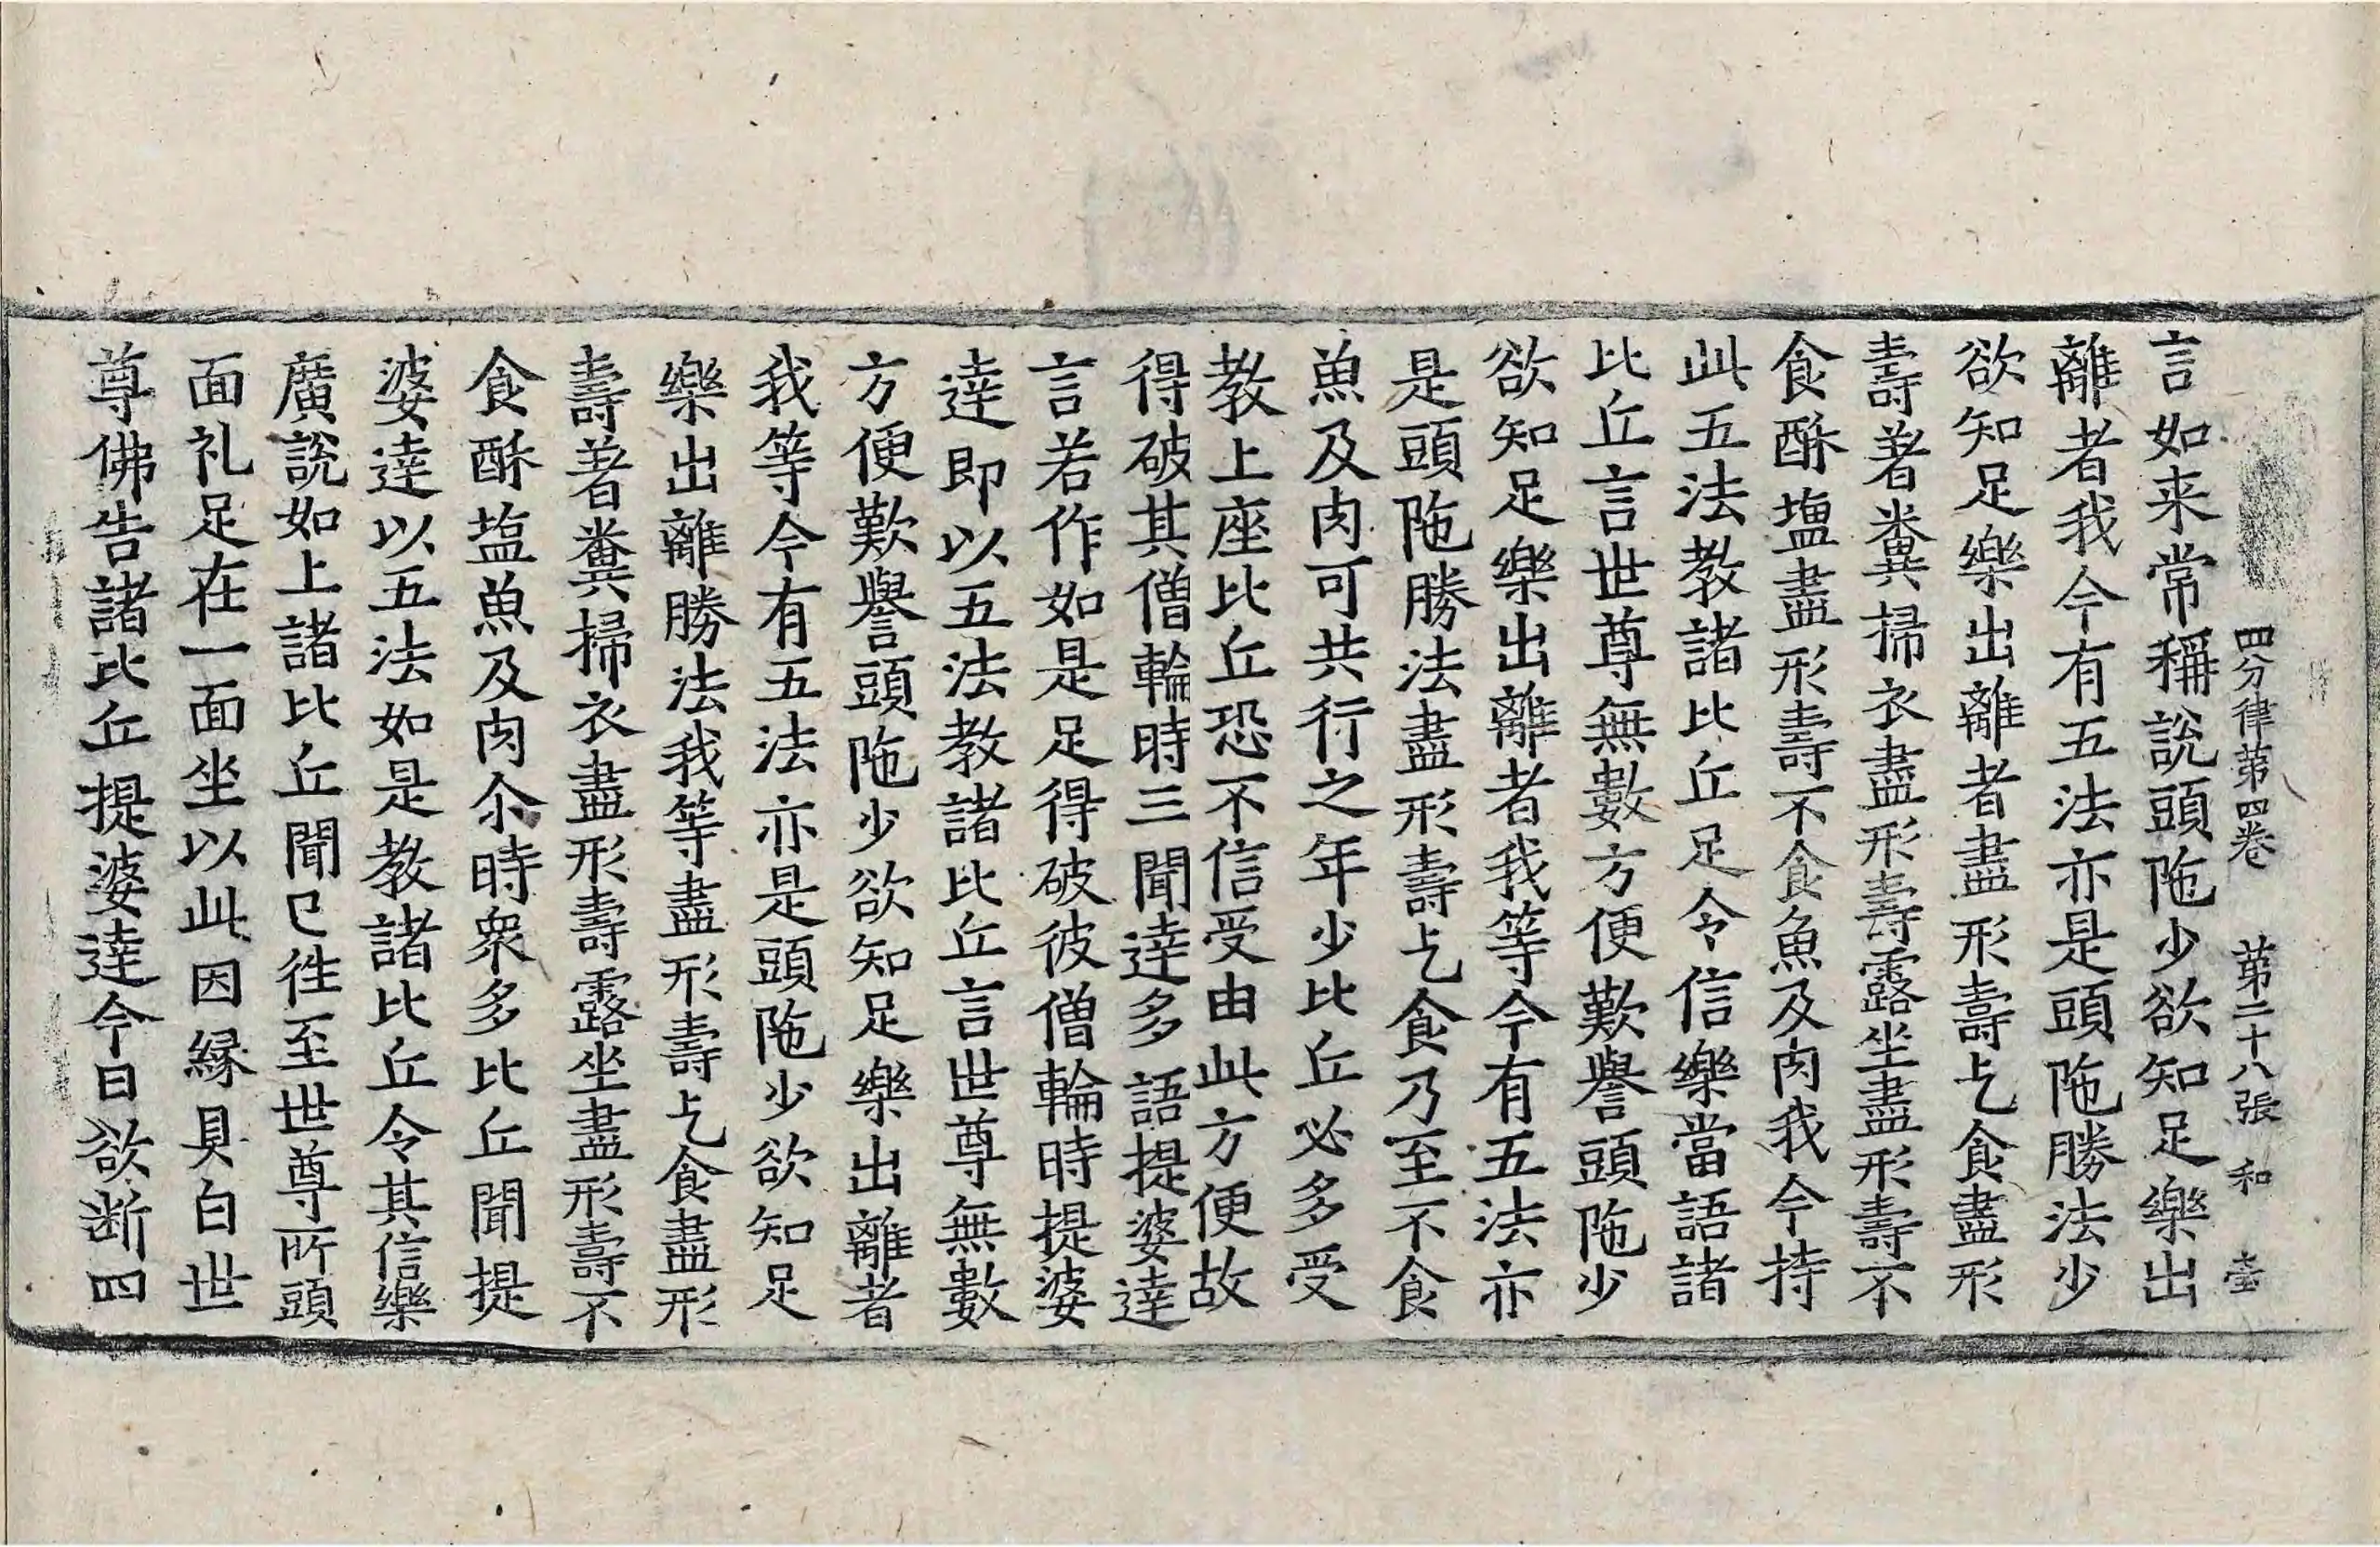 四分律苐四卷　苐二十八張　和　壹
言如来常稱說頭陁少欲知足樂出
離者我今有五法亦是頭陁勝法少
欲知足樂出離者盡形壽乞食盡形
壽著糞掃衣盡形壽露坐盡形壽不
食酥塩盡形壽不食魚及肉我今持
此五法教諸比丘足令信樂當語諸
比丘言世尊無數方便歎譽頭陁少
欲知足樂出離者我等今有五法亦
是頭陁勝法盡形壽乞食乃至不食
魚及肉可共行之年少比丘必多受
教上座比丘恐不信受由此方便故
得破其僧輪時三聞達多語提婆達
言若作如是足得破彼僧輪時提婆
達即以五法教諸比丘言世尊無數
方便歎譽頭陁少欲知足樂出離者
我等今有五法亦是頭陁少欲知足
樂出離勝法我等盡形壽乞食盡形
壽著糞掃衣盡形壽露坐盡形壽不
食酥塩魚及肉尒時衆多比丘聞提
婆達以五法如是教諸比丘令其信樂
廣說如上諸比丘聞已往至世尊所頭
面礼足在一面坐以此因緣具白世
尊佛告諸比丘提婆達今日欲断四